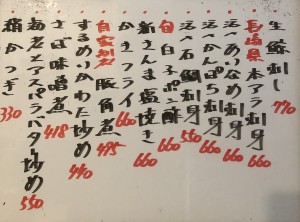 生鯨刺し 770
長崎県 本アラ刺身 660
活〆あいなめ刺身 660
活〆かんぱち刺身 660
活〆石鯛刺身 550
旬 白子ポン酢 660
新さんま塩焼き 660
かきフライ 660
自家製 豚角煮 495
するめいかわた炒め 440
さば味噌煮 418
海老とアスパラバター炒め 550
絹かつぎ 330